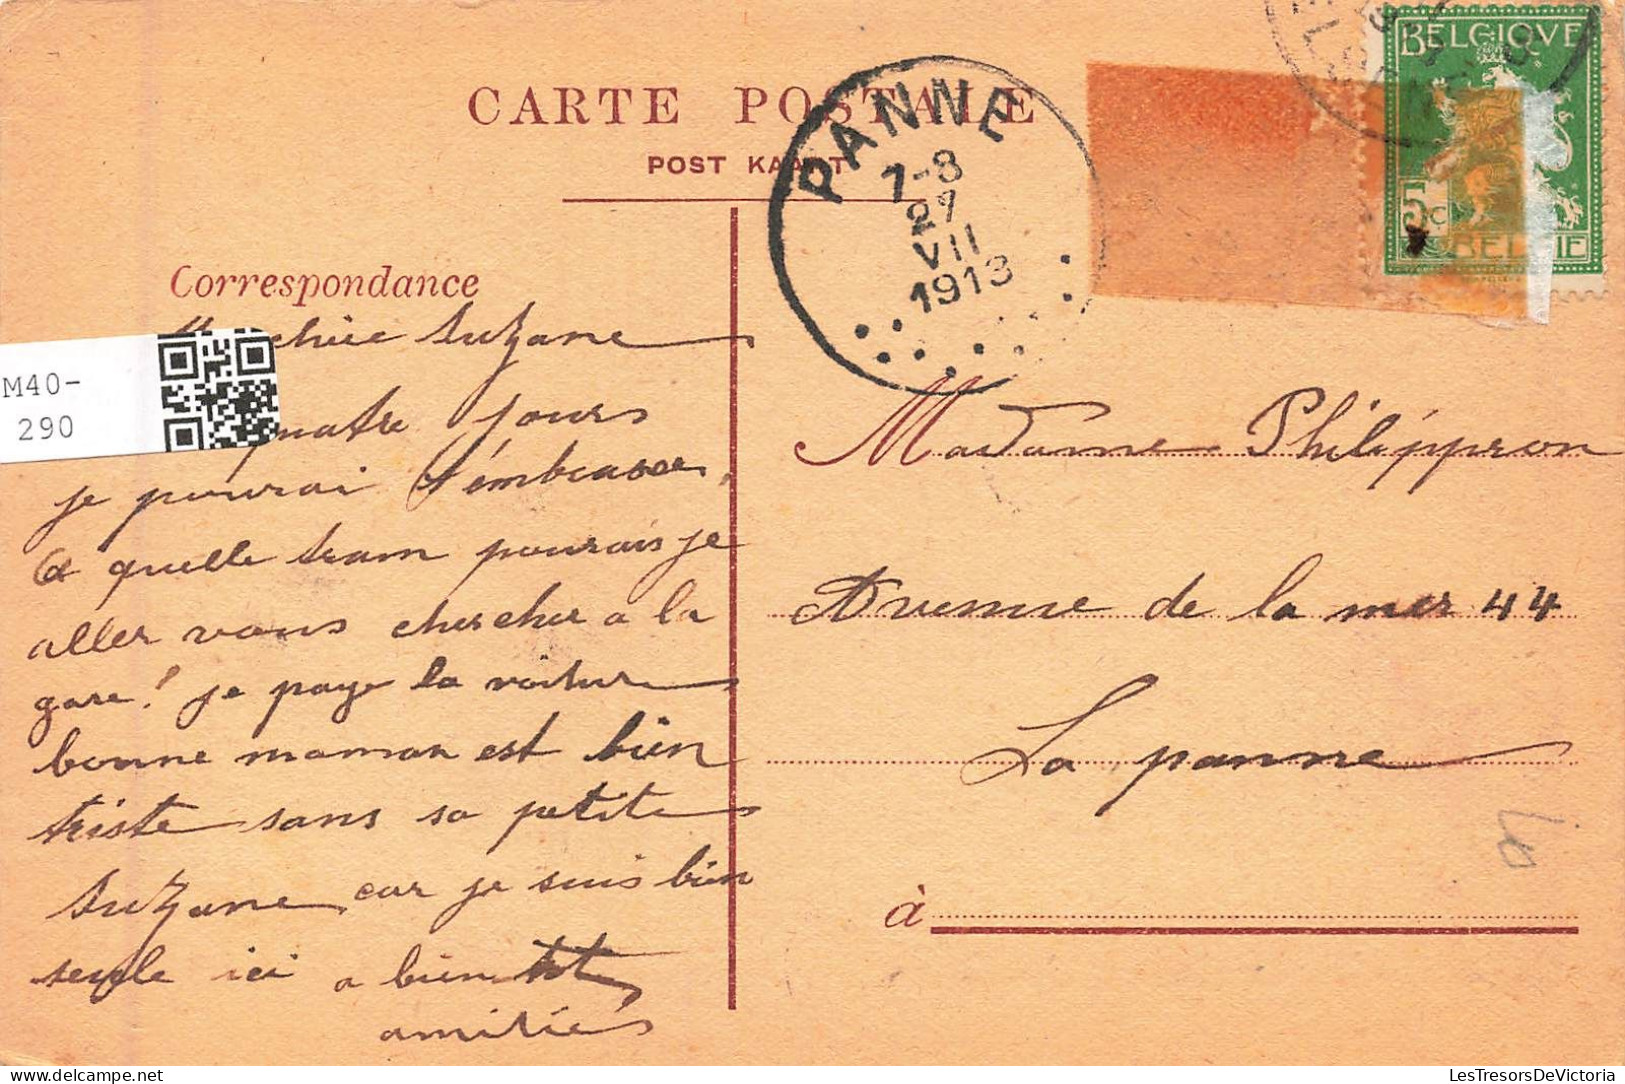 CARTE POSTALE
POST KAART
PANNE
7-8
27
VII
1913
BELGIQUE
5c
BELGIE
Correspondance
chérie Suzane
M40-
290
quatre jours
je pourai t'embrasser
a quelle tram pourais je
aller vous chercher a la
gare! je paye la voiture
bonne maman est bien
triste sans sa petite
Suzane car je suis bien
seule ici a bientot
amitiés
Madame Philippron
Avenue de la mer 44
La panne
à
LesTresorsDeVictoria